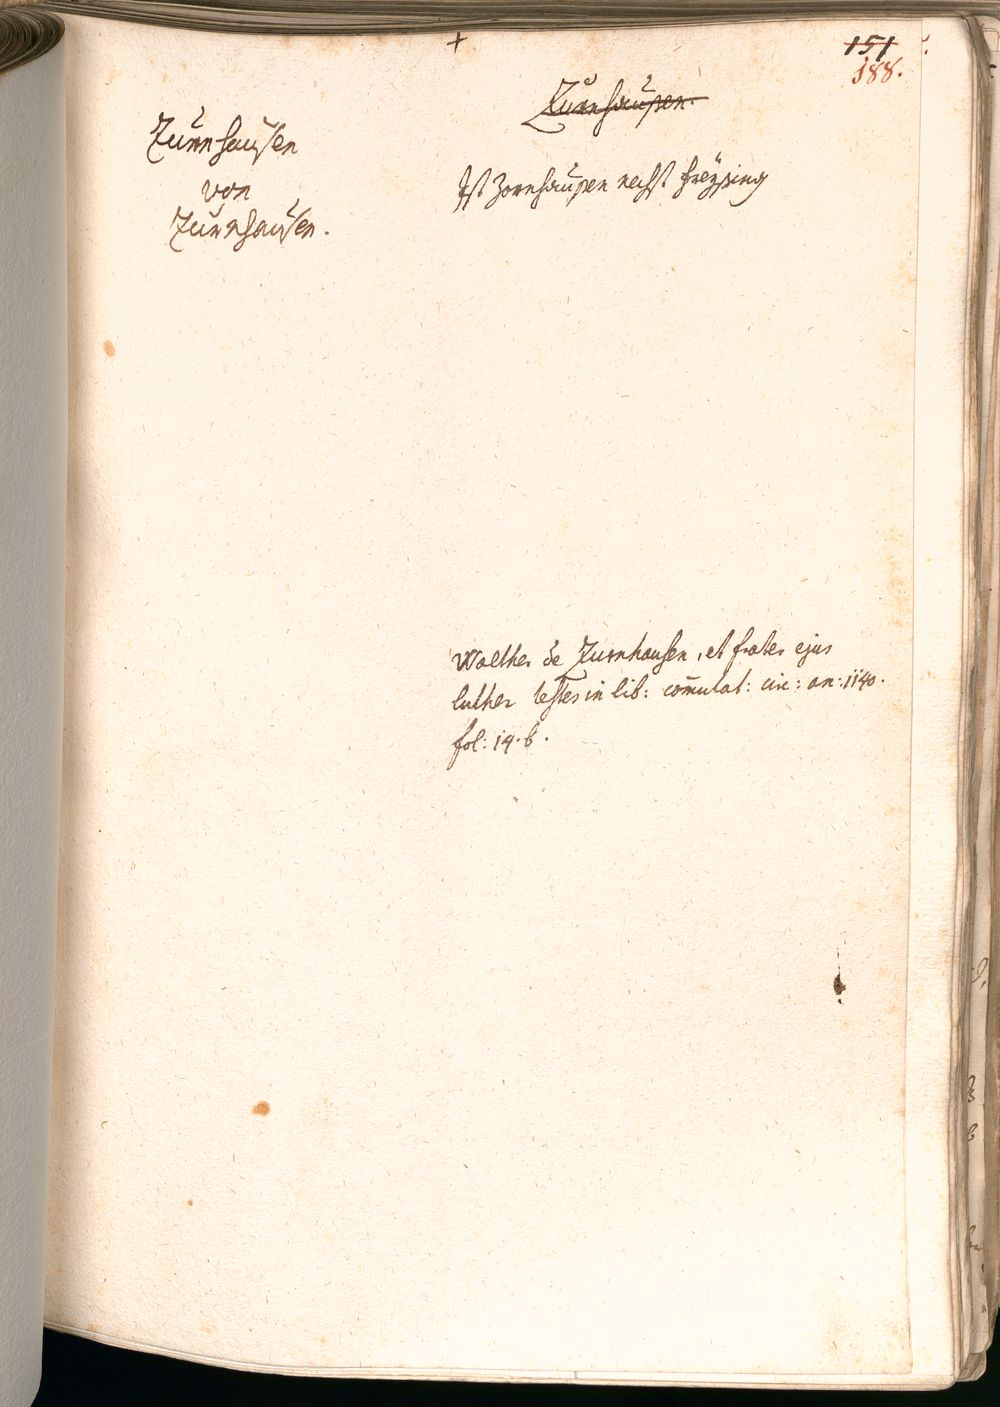 +
151
188.
Zurnhausen
Zurnhausen
von
Zurnhausen.
Ist Zornhausen nechst Freÿsing
Walther de Zurnhausen, et frater ejus
luther testes in lib: com̄utat: circ: an: 1140.
fol: 14. b.